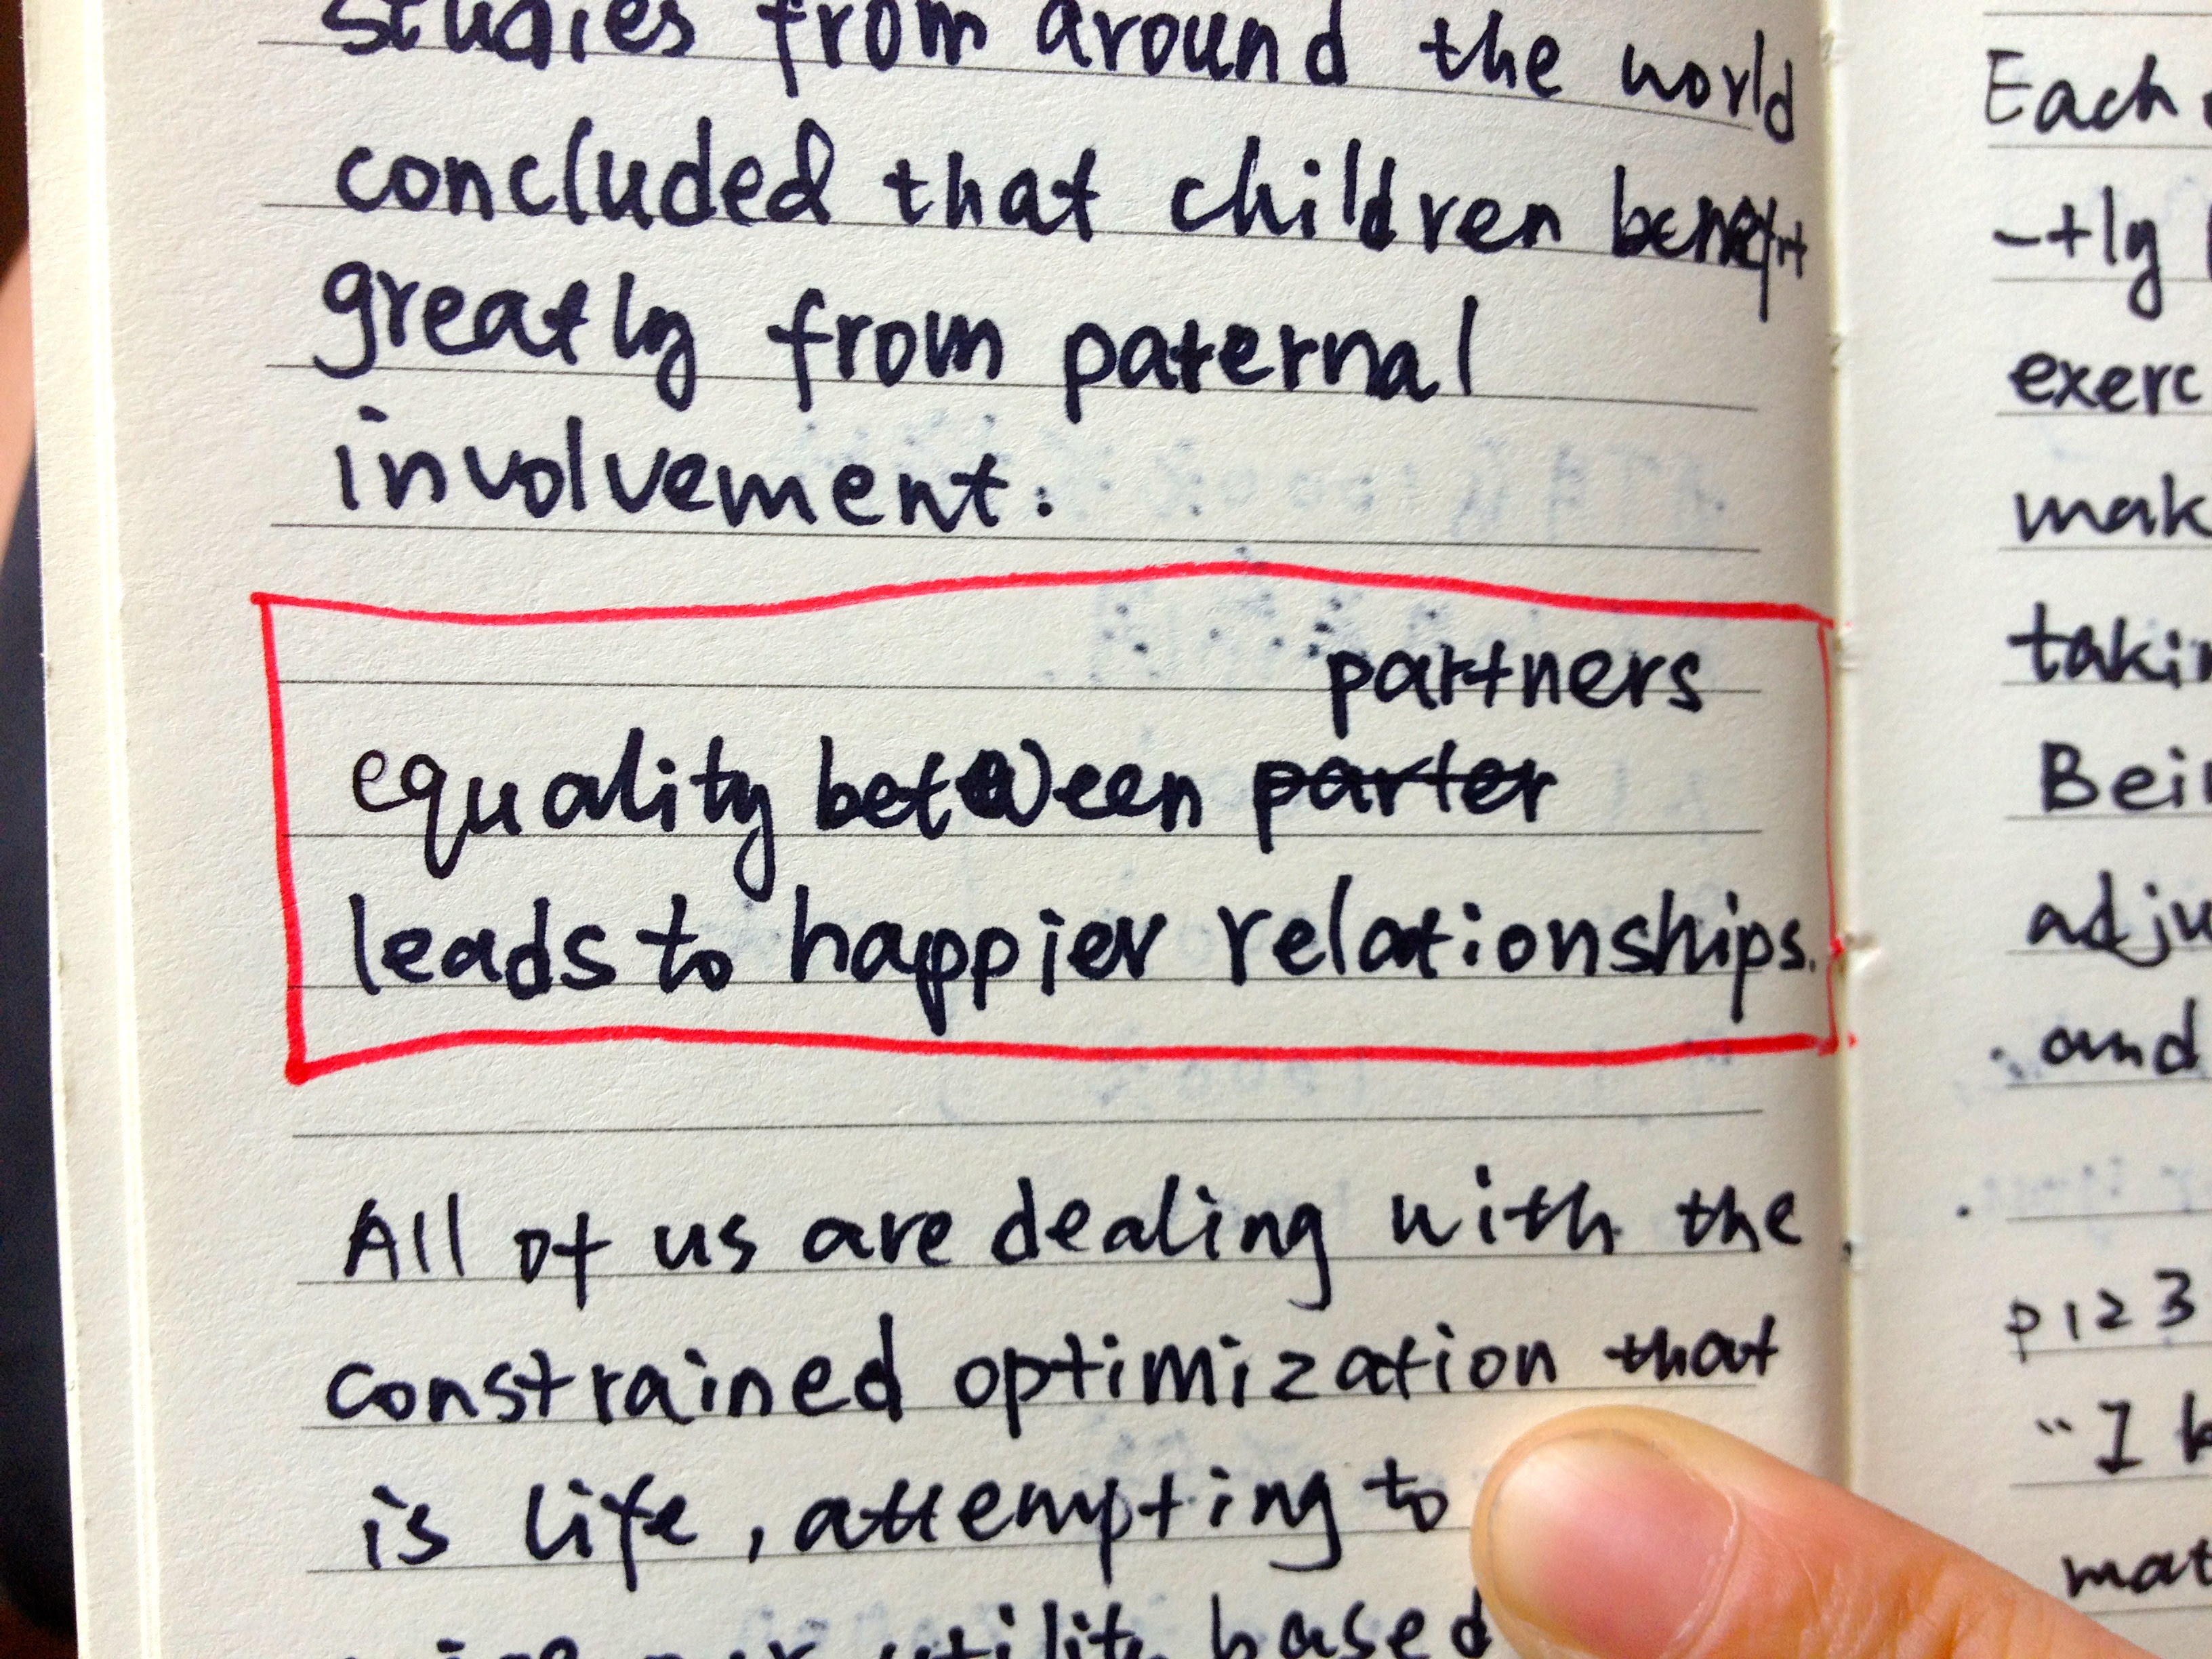 studies from around the world
concluded that children benefit
greatly from paternal
involvement.
partners
equality between parter
leads to happier relationships.
All of us are dealing with the
constrained optimization that
is life, attempting to
utility based
Each
-tly
exerc
mak
takin
Bein
adju
and
p123
"I
mat